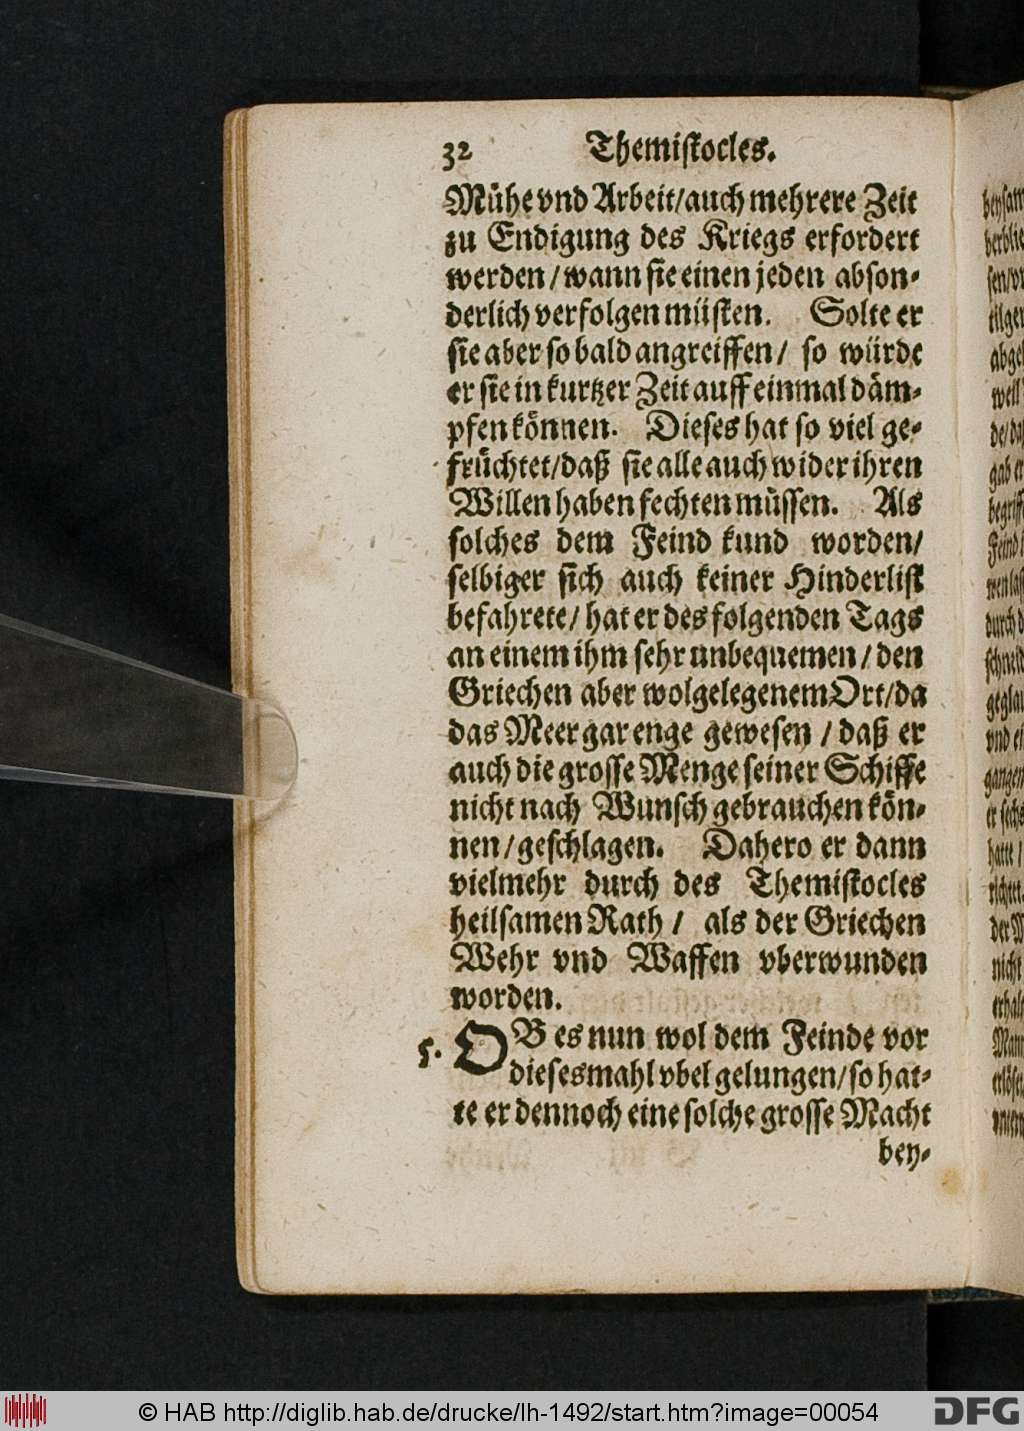 32 Themistocles.
Mühe vnd Arbeit/auch mehrere Zeit
zu Endigung des Kriegs erfordert
werden/wann sie einen jeden abson-
derlich verfolgen müsten. Solte er
sie aber so bald angreiffen/ so würde
er sie in kurtzer Zeit auff einmal däm-
pfen können. Dieses hat so viel ge-
früchtet/daß sie alle auch wider ihren
Willen haben fechten müssen. Als
solches dem Feind kund worden/
selbiger sich auch keiner Hinderlist
befahrete/ hat er des folgenden Tags
an einem ihm sehr unbequemen/den
Griechen aber wolgelegenem Ort/da
das Meer gar enge gewesen / daß er
auch die grosse Menge seiner Schiffe
nicht nach Wunsch gebrauchen kön-
nen/geschlagen. Dahero er dann
vielmehr durch des Themistocles
heilsamen Rath / als der Griechen
Wehr vnd Waffen vberwunden
worden.
5. OB es nun wol dem Feinde vor
diesesmahl vbel gelungen/so hat-
te er dennoch eine solche grosse Macht
bey-
© HAB http://diglib.hab.de/drucke/lh-1492/start.htm?image=00054
DFG